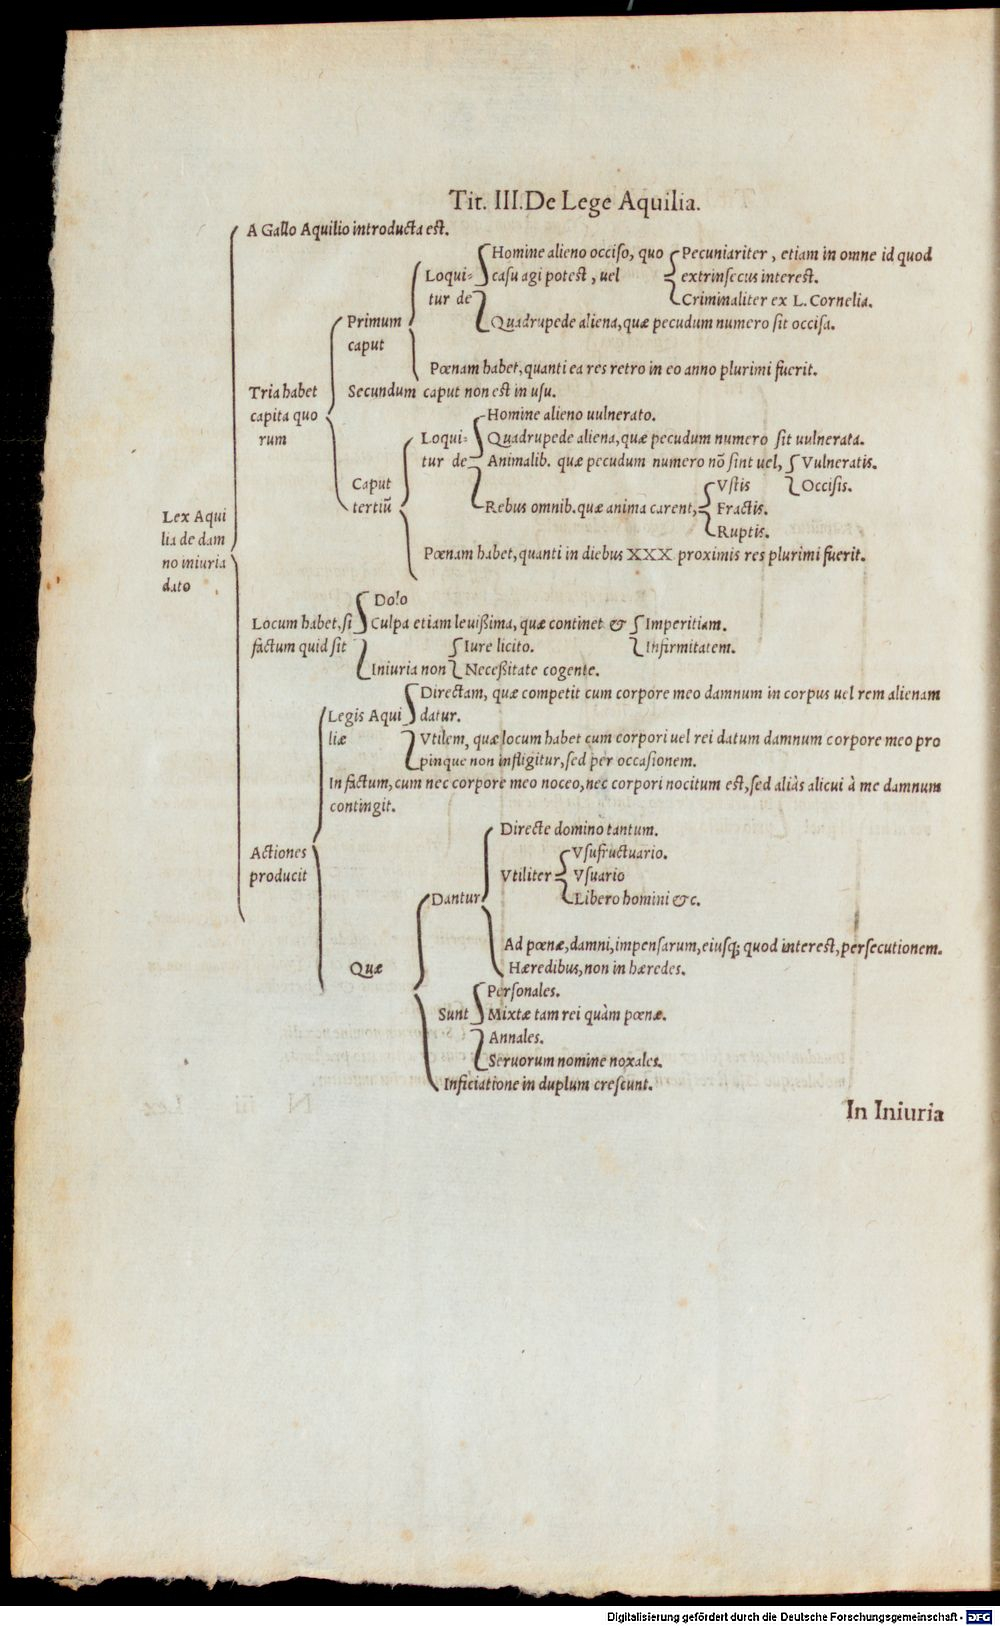 Tit. III. De Lege Aquilia.
A Gallo Aquilio introducta est.
Homine alieno occiſo, quo
Pecuniariter, etiam in omne id quod
Loqui-
caſu agi poteſt, uel
extrinſecus intereſt.
tur de
Criminaliter ex L. Cornelia.
Primum
Quadrupede aliena, quæ pecudum numero ſit occiſa.
caput
Pœnam habet, quanti ea res retro in eo anno plurimi fuerit.
Tria habet
Secundum caput non eſt in uſu.
capita quo
Homine alieno uulnerato.
rum
Loqui-
Quadrupede aliena, quæ pecudum numero ſit uulnerata.
tur de
Animalib. quæ pecudum numero nõ ſint uel,
Vulneratis.
Caput
Vſtis
Occiſis.
tertiũ
Rebus omnib. quæ anima carent,
Fractis.
Lex Aqui
Ruptis.
lia de dam
Pœnam habet, quanti in diebus XXX proximis res plurimi fuerit.
no iniuria
dato
Dolo
Locum habet, ſi
Culpa etiam leuißima, quæ continet &
Imperitiam.
factum quid ſit
Iure licito.
Infirmitatem.
Iniuria non
Neceßitate cogente.
Directam, quæ competit cum corpore meo damnum in corpus uel rem alienam
Legis Aqui
datur.
liæ
Vtilem, quæ locum habet cum corpori uel rei datum damnum corpore meo pro
pinque non infligitur, ſed per occaſionem.
In factum, cum nec corpore meo noceo, nec corpori nocitum eſt, ſed aliàs alicui à me damnum
contingit.
Directe domino tantum.
Actiones
Vſufructuario.
producit
Vtiliter
Vſuario
Dantur
Libero homini &c.
Ad pœnæ, damni, impenſarum, eiuſq; quod intereſt, perſecutionem.
Quæ
Hæredibus, non in hæredes.
Perſonales.
Sunt
Mixtæ tam rei quàm pœnæ.
Annales.
Seruorum nomine noxales.
Inficiatione in duplum creſcunt.
In Iniuria
Digitalisierung gefördert durch die Deutsche Forschungsgemeinschaft - DFG